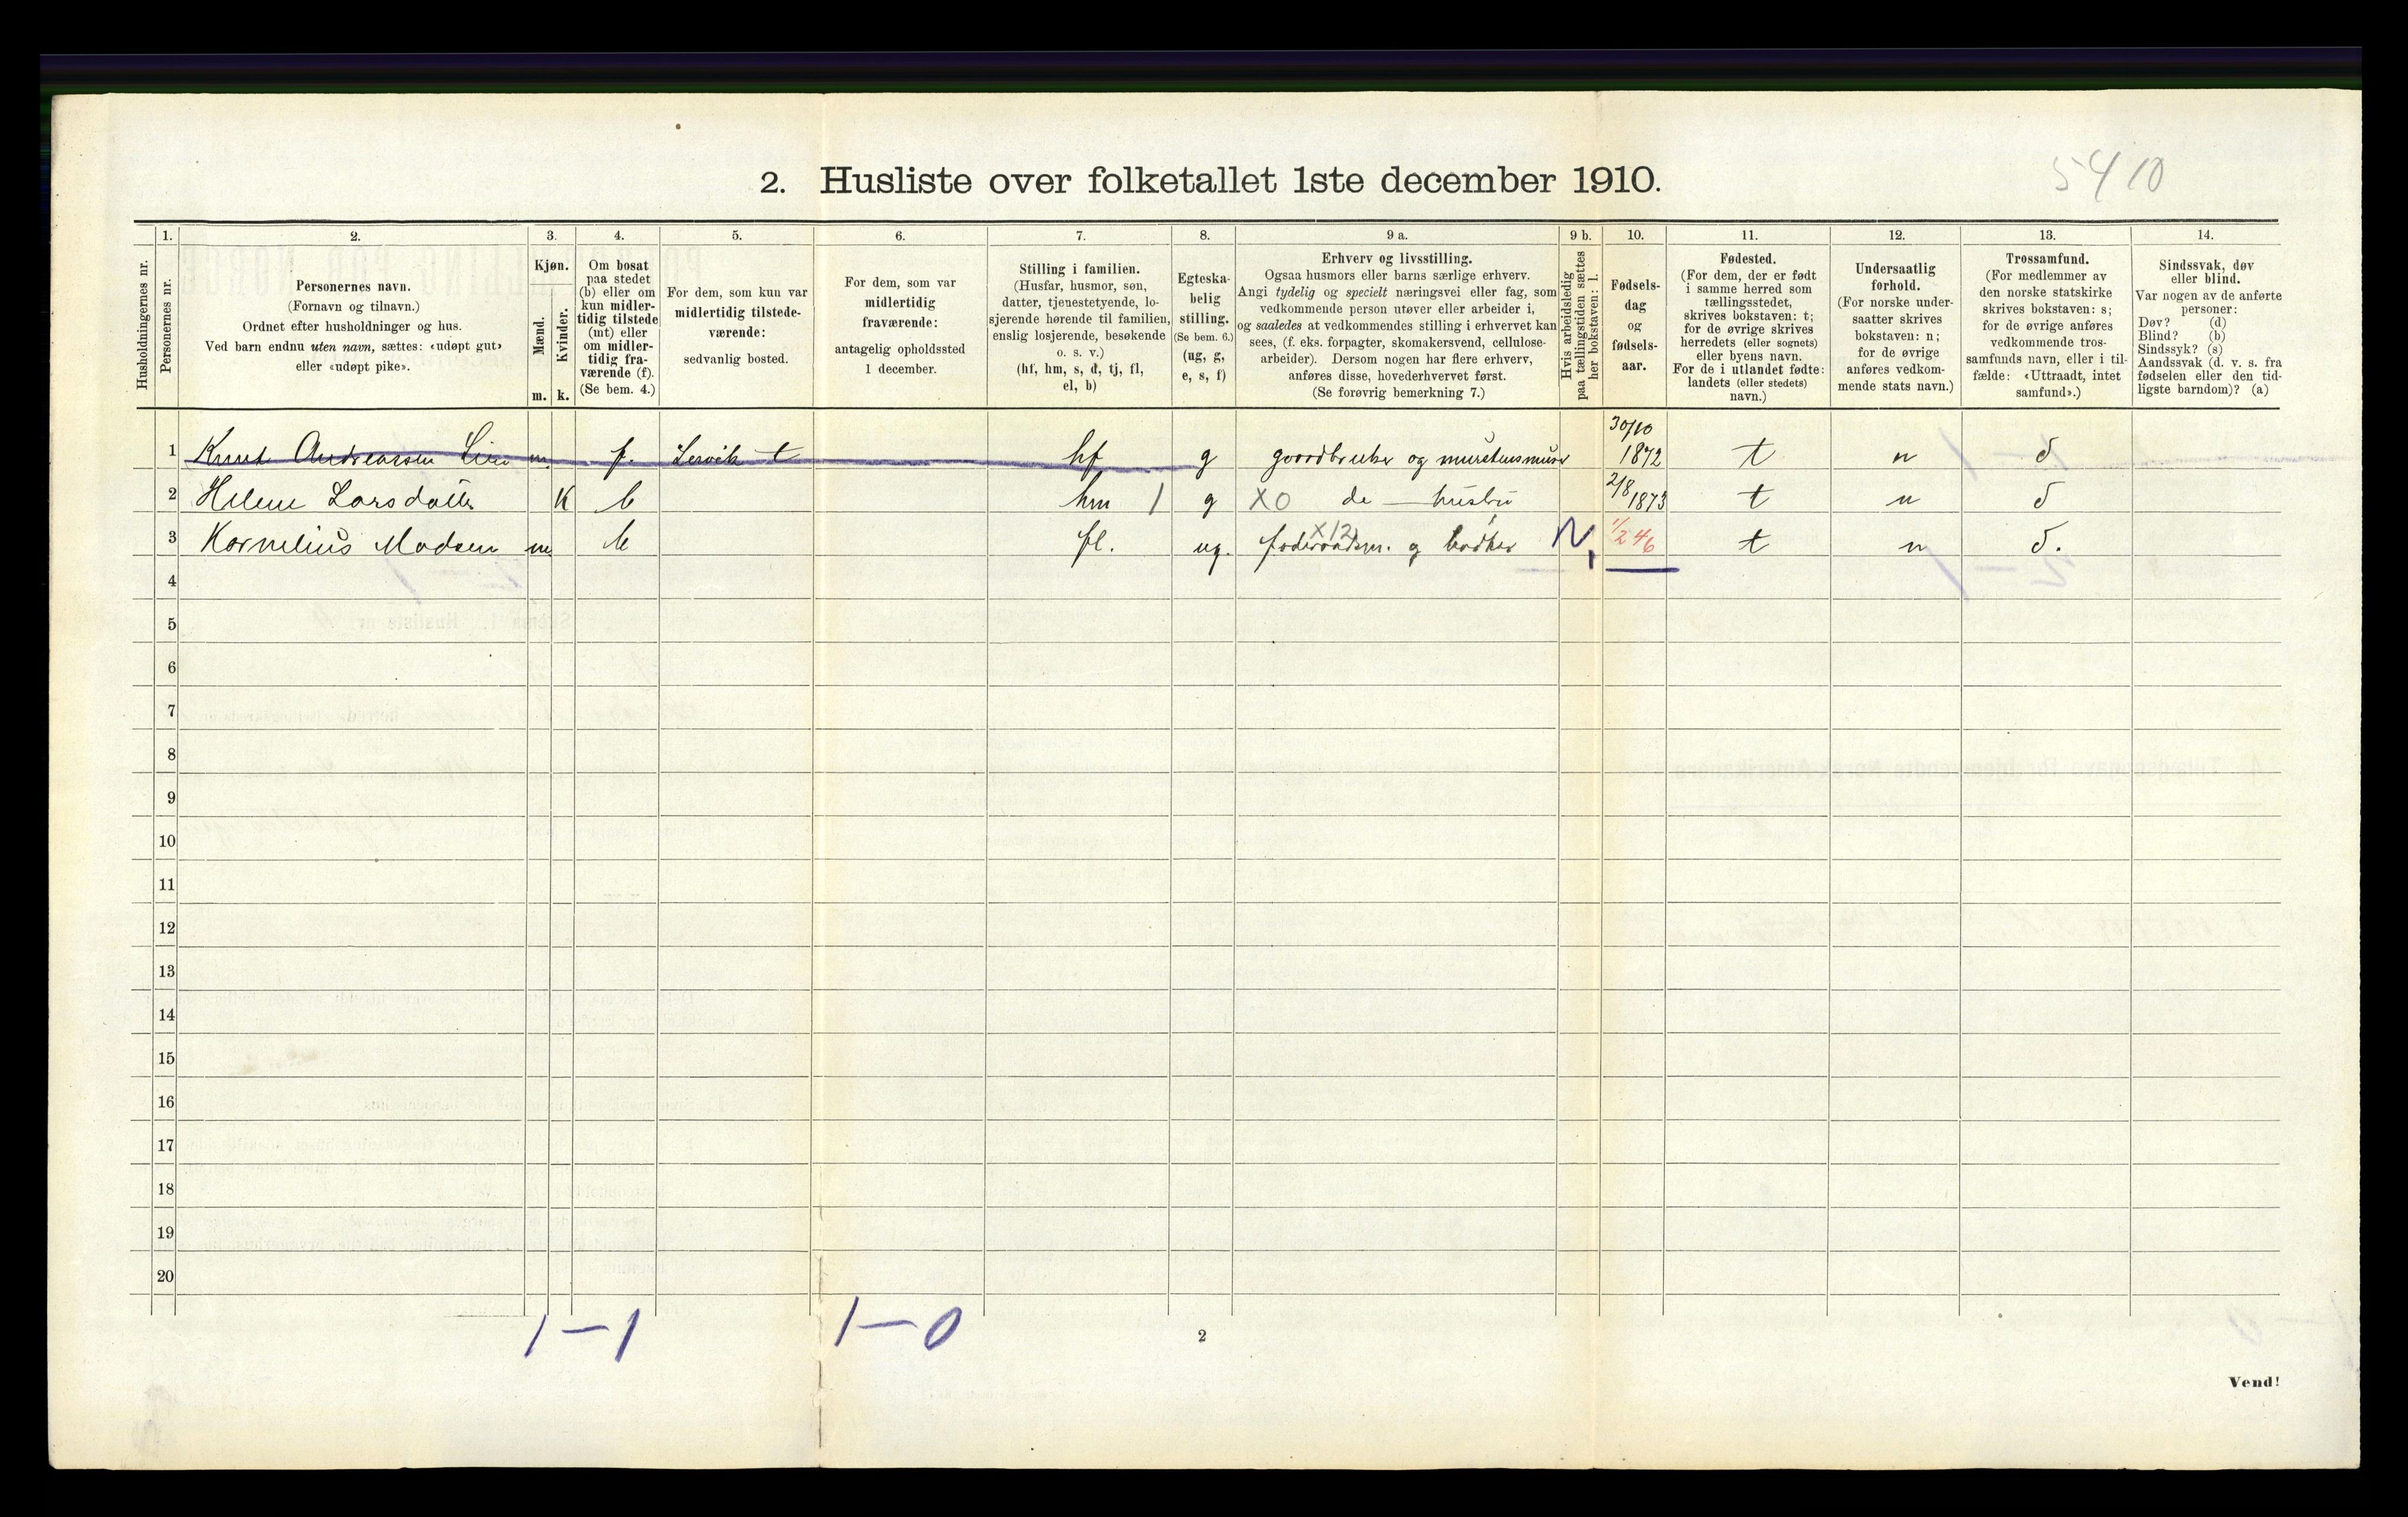 5410
2. Husliste over folketallet 1ste december 1910.
Husholdningernes nr.
1.
Personernes nr.
2.
Personernes navn.
(Fornavn og tilnavn.)
Ordnet efter husholdninger og hus.
Ved barn endnu uten navn, sættes: «udøpt gut»
eller «udøpt pike».
3.
Kjøn.
Mænd.
Kvinder.
m. k.
4.
Om bosat
paa stedet
(b) eller om
kun midler-
tidig tilstede
(mt) eller
om midler-
tidig fra-
værende (f).
(Se bem. 4.)
5.
For dem, som kun var
midlertidig tilstede-
værende:
sedvanlig bosted.
6.
For dem, som var
midlertidig
fraværende:
antagelig opholdssted
1 december.
7.
Stilling i familien.
(Husfar, husmor, søn,
datter, tjenestetyende, lo-
sjerende hørende til familien,
enslig losjerende, besøkende
o. s. v.)
(hf, hm, s, d, tj, fl,
el, b)
8.
Egteska-
belig
stilling.
(Se bem. 6.)
(ug, g,
e, s, f)
9 a.
Erhverv og livsstilling.
Ogsaa husmors eller barns særlige erhverv.
Angi tydelig og specielt næringsvei eller fag, som
vedkommende person utøver eller arbeider i,
og saaledes at vedkommendes stilling i erhvervet kan
sees, (f. eks. forpagter, skomakersvend, cellulose-
arbeider). Dersom nogen har flere erhverv,
anføres disse, hovederhvervet først.
(Se forøvrig bemerkning 7.)
9 b.
Hvis arbeidsledig
paa tællingstiden sættes
her bokstaven: l.
10.
Fødsels-
dag
og
fødsels-
aar.
11.
Fødested.
(For dem, der er født
i samme herred som
tællingsstedet,
skrives bokstaven: t;
for de øvrige skrives
herredets (eller sognets)
eller byens navn.
For de i utlandet fødte:
landets (eller stedets)
navn.)
12.
Undersaatlig
forhold.
(For norske under-
saatter skrives
bokstaven: n;
for de øvrige
anføres vedkom-
mende stats navn.)
13.
Trossamfund.
(For medlemmer av
den norske statskirke
skrives bokstaven: s;
for de øvrige anføres
vedkommende tros-
samfunds navn, eller i til-
fælde: «Uttraadt, intet
samfund».)
14.
Sindssvak, døv
eller blind.
Var nogen av de anførte
personer:
Døv? (d)
Blind? (b)
Sindssyk? (s)
Aandssvak (d. v. s. fra
fødselen eller den tid-
ligste barndom)? (a)
1 Knut Andreassen m. f. Lervik t hf g gaardbruker og 30/10 1872 t n s
2 Helene Larsdatter K b hm 1 g X0 de hustru 2/8 1873 t n s
3 Kornelius Madsen m b fl. ug. X12 foderaadsm. og bødker N, 1/2 46 t n s.
4
5
6
7
8
9
10
11
12
13
14
15
16
17
18
19
20
1—1 1—0
2
Vend!